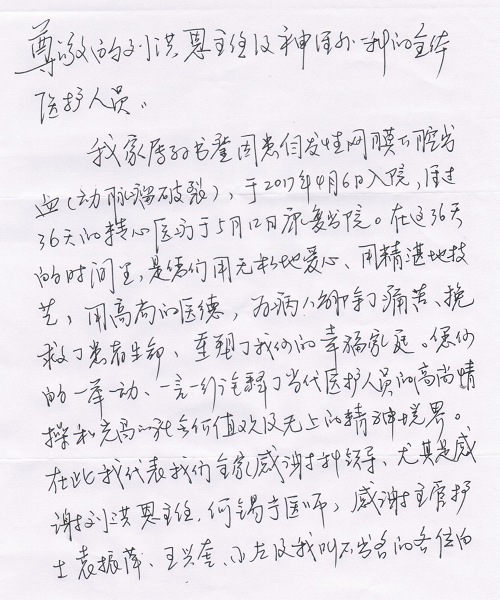 尊敬的刘洪恩主任及神经外科的全体
医护人员。
我家属孙书登因患自发性网膜下腔出
血（动脉瘤破裂），于2017年4月6日入院，经过
36天的精心医疗于5月12日康复出院。在这36天
的时间里，是您们用无私地爱心、用精湛地技
艺，用高尚的医德，为病人解除了痛苦、挽
救了患者生命，重塑了我们的幸福家庭。您们
的一举一动、一言一行诠释了当代医护人员的高尚情
操和崇高的社会价值观及无上的精神境界。
在此我代表我们全家感谢科领导、尤其是感
谢刘洪恩主任，何锡 医师，感谢主管护
士袁振萍、王兴奎、小左及我叫不出名的各位白